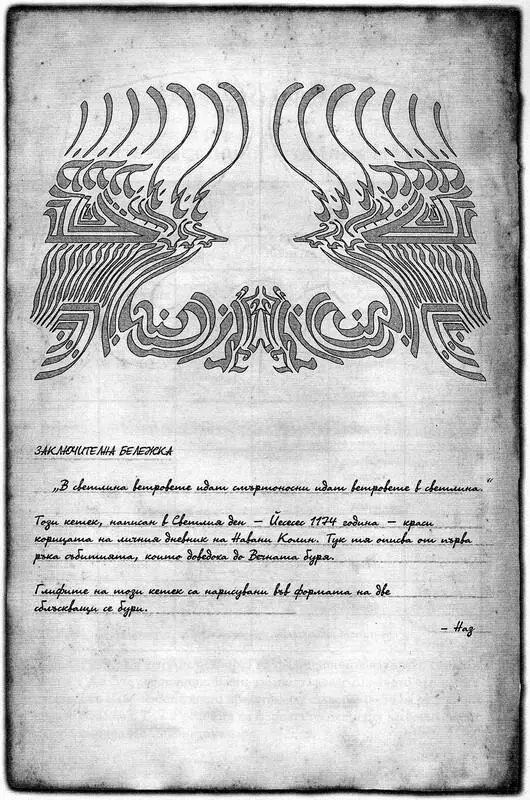 ЗАКЛЮЧИТЕЛНА БЕЛЕЖКА
„В светлина ветровете идат смъртоносни идат ветровете в светлина.“
Този кетек, написан в Светлия ден – Йесесес 1174 година – краси
корицата на личния дневник на Навани Колин. Тук тя описва от първа
ръка събитията, които доведоха до Вечната буря.
Глифите на този кетек са нарисувани във формата на две
сблъскващи се бури.
– Наз